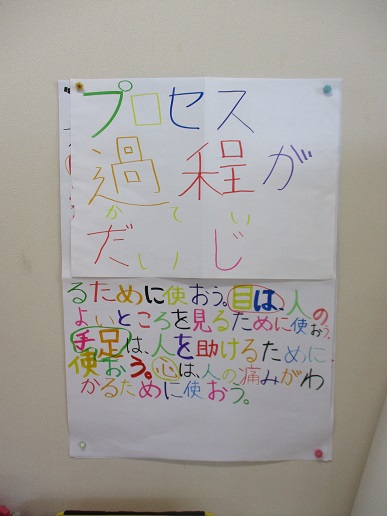 プロセス
過程が
かてい
だいじ
るために使おう。目は、人の
よいところを見るために使おう。
手足は、人を助けるために
使おう。心は、人の痛みがわ
かるために使おう。